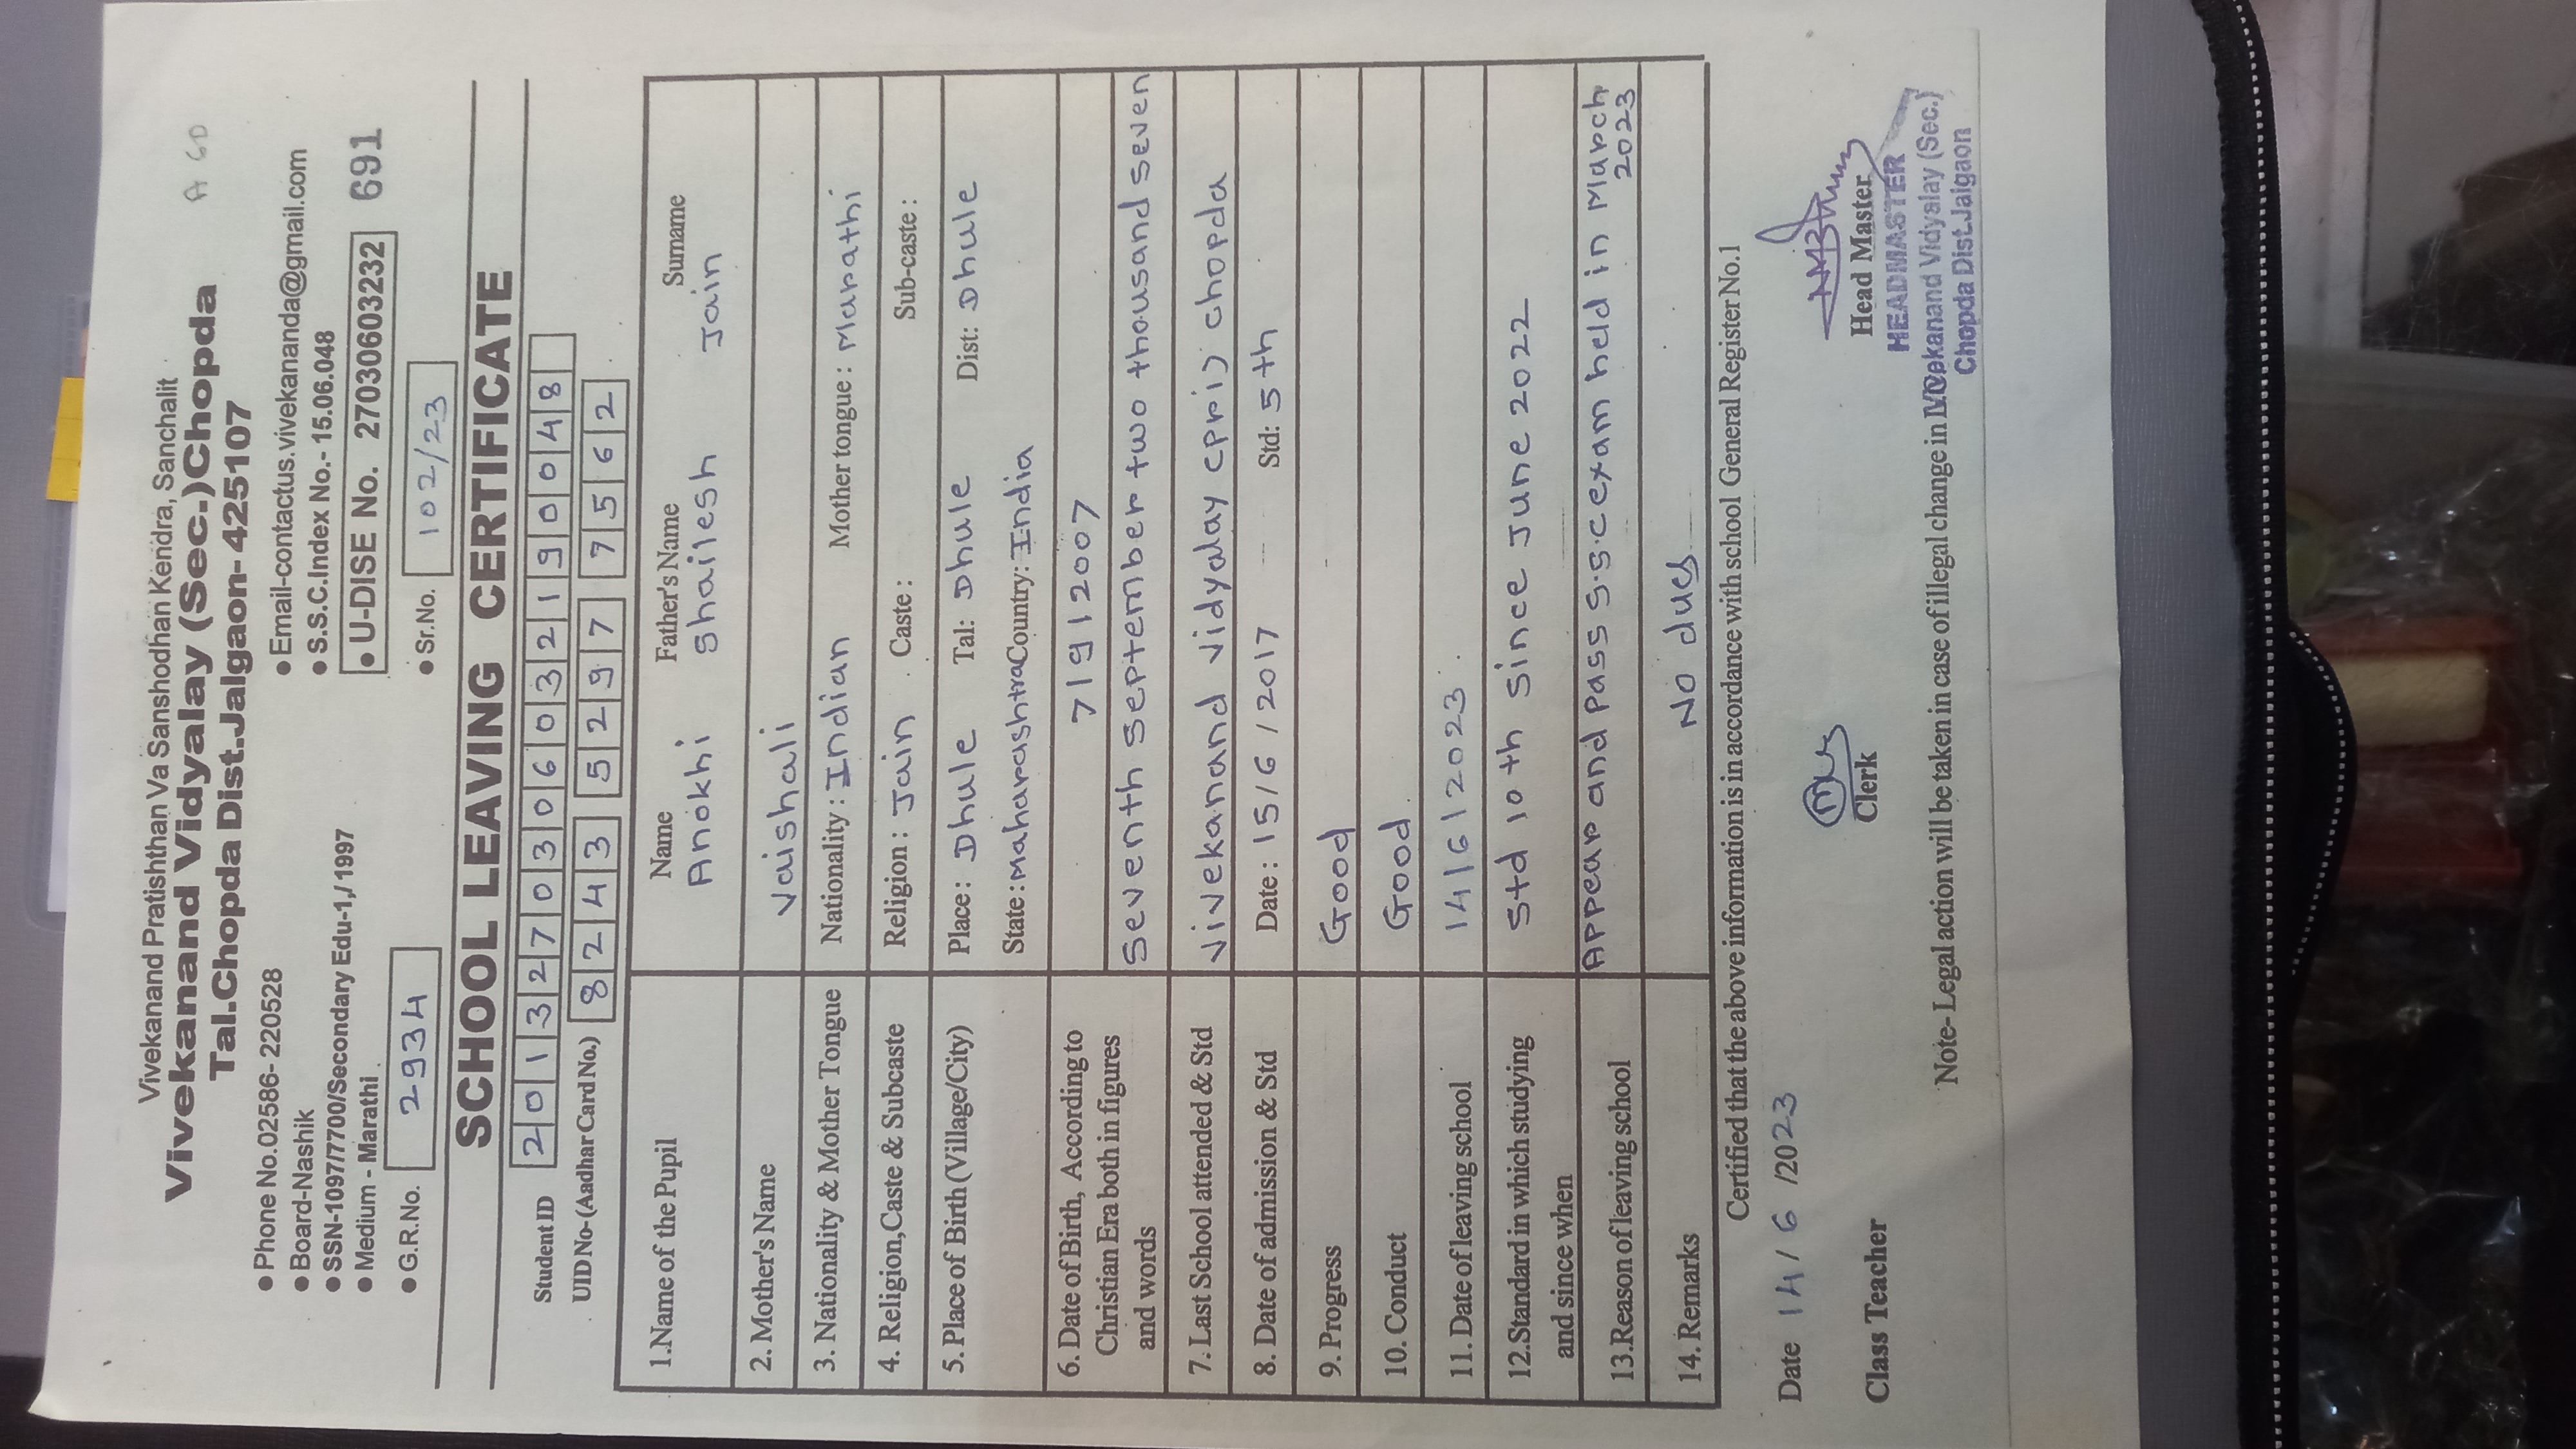 Vivekanand Pratishthan Va Sanshodhan Kendra, Sanchalit
Vivekanand Vidyalay (Sec.)Chopda
Tal.Chopda Dist.Jalgaon-425107
A 60
● Phone No.02586- 220528
● Email-contactus.vivekananda@gmail.com
● Board-Nashik
● S.S.C.Index No.- 15.06.048
● SSN-1097/7700/Secondary Edu-1,/1997
● U-DISE No. 27030603232
691
● Medium - Marathi
● G.R.No. 2934
● Sr.No. 102/23
SCHOOL LEAVING CERTIFICATE
Student ID 2013270306032190048
UID No-(Aadhar Card No.) 8243 5297 7562
1.Name of the Pupil Name Father's Name Surname
Anokhi Shailesh Jain
2. Mother's Name Vaishali
3. Nationality & Mother Tongue Nationality : Indian Mother tongue : Marathi
4. Religion,Caste & Subcaste Religion : Jain Caste : Sub-caste :
5. Place of Birth (Village/City) Place : Dhule Tal: Dhule Dist: Dhule
State : Maharashtra Country: India
6. Date of Birth, According to 7/9/2007
Christian Era both in figures
and words Seventh September two thousand seven
7. Last School attended & Std Vivekanand Vidyalay (pri) Chopda
8. Date of admission & Std Date : 15/6/2017 Std: 5th
9. Progress Good
10. Conduct Good
11. Date of leaving school 14/6/2023
12.Standard in which studying Std 10th Since June 2022
and since when
13.Reason of leaving school Appear and pass S.S.C exam held in March
2023
14. Remarks No dues
Certified that the above information is in accordance with school General Register No.1
Date 14/6/2023
Class Teacher Clerk Head Master
HEADMASTER
Vivekanand Vidyalay (Sec.)
Chopda Dist.Jalgaon
Note- Legal action will be taken in case of illegal change in